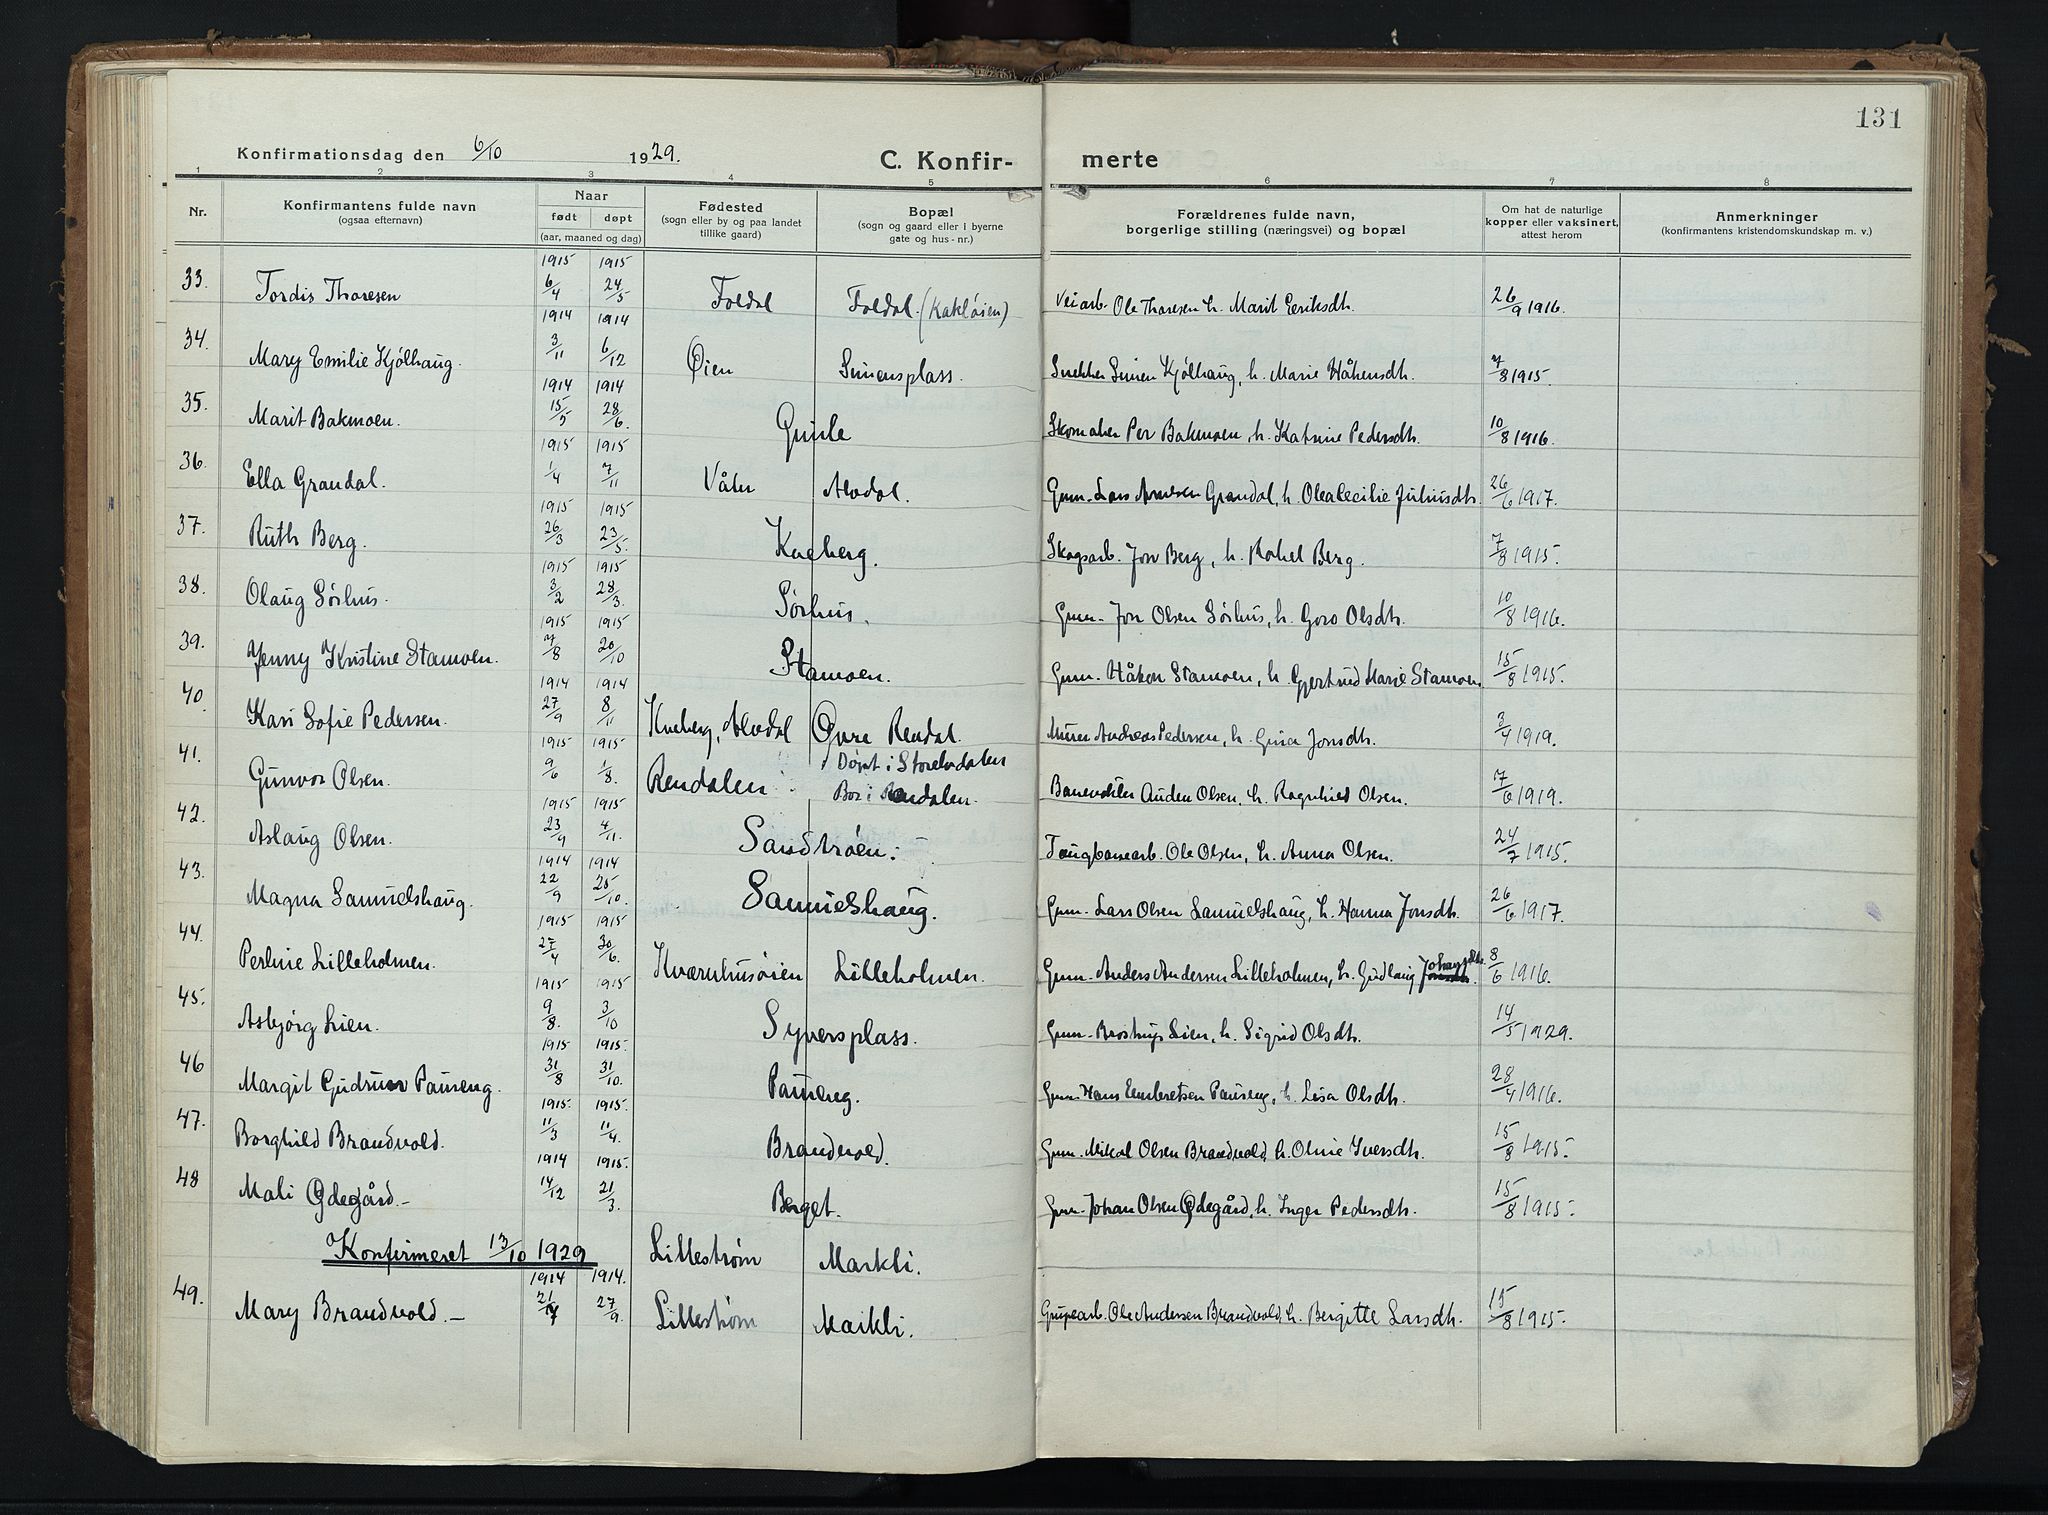 131
Konfirmationsdag den 6/10 1929. C. Konfir- merte
1 2 3 4 5 6 7 8
Nr. Konfirmantens fulde navn (ogsaa efternavn) Naar født døpt (aar, maaned og dag) Fødested (sogn eller by og paa landet tillike gaard) Bopæl (sogn og gaard eller i byerne gate og hus-nr.) Forældrenes fulde navn, borgerlige stilling (næringsvei) og bopæl Om hat de naturlige kopper eller vaksinert, attest herom Anmerkninger (konfirmantens kristendomskundskap m. v.)
33. Tordis Thoresen 1915 6/4 1915 24/5 Foldal Foldal. (Kakløien) Veiarb. Ole Thoresen h. Marit Eeriksdh. 26/9 1916.
34. Mary Emilie Kjølhaug. 1914 3/11 1914 6/12 Øien Simensplass. Snekker Simen Kjølhaug, h. Marie Håkensdh. 7/8 1915.
35. Marit Bakmoen. 1914 15/5 1914 28/6. Skomaker Per Bakmoen, h. Katrine Pedersdh. 10/8 1916.
36. Ella Grandal. 1915 1/4 1915 7/11 Alvdal. Gmn. Lars Arnesen Grandal, h. Olea Cecilie Juliusdh. 26/6 1917.
37. Ruth Berg. 1915 26/3 1915 23/5. Kneberg. Skogsarb. Jon Berg, h. Rakel Berg. 7/8 1915.
38. Olaug Sörhus. 1915 3/2 1915 28/3. Sørhus. Gmn. Jon Olsen Sörhus, h. Goro Olsdh. 10/8 1916.
39. Jenny Kristine Stamoen. 1915 7/8 1915 20/10 Stamoen. Gmn. Håkon Stamoen, h. Gjertrud Marie Stamoen. 15/8 1915.
40. Kari Sofie Pedersen. 1914 27/9 1914 8/11 Kneberg, Alvdal Øvre Rendal. Murer Andreas Pedersen, h. Gina Jonsdh. 3/4 1919.
41. Gunvor Olsen. 1915 9/6 1915 1/8. Rendalen Døpt i Storelvdalen
Bor i Rendalen. Banevokter Auden Olsen, h. Ragnhild Olsen. 17/6 1919.
42. Aslaug Olsen. 1915 23/9 1915 4/11. Sandtrøen. Taugbanearb. Ole Olsen, h. Anna Olsen. 24/7 1915.
43. Magna Samuelshaug. 1914 22/9 1914 25/10. Samuelshaug. Gmn. Lars Olsen Samuelshaug, h. Hanna Jonsdh. 26/6 1917.
44. Perline Lilleholmen. 1915 27/4 1915 30/6. Kværnhusøien Lilleholmen. Gmn. Anders Andersen Lilleholmen, h. Gudlaug 8/6 1916.
45. Asbjörg Lien. 1915 9/8. 1915 3/10 Syversplass. Gmn. Brostrup Lien, h. Sigrid Olsdh. 14/5 1929.
46 Margit Gudrun Pauseng. 1915 31/8 1915. 31/10. Pauseng. Gmn. Hans Embretsen Pauseng, h. Lisa Olsdh. 28/4 1916.
47. Borghild Brandvold. 1915. 11/3 1915. 11/4. Brandvold. Gmn. Mikal Olsen Brandvold, h. Oline Iversdh. 15/8 1915.
48 Mali Ødegård.- 1914 14/12 1915. 21/3. Berget. Gmn. Johan Olsen Ødegård, h. Inger Pedersdh. 15/8 1915.
Konfirmeret 13/10 1929 Lillestrøm Markli.
49. Mary Brandvold.- 1914 21/7 1914. 27/9. Lillestrøm Markli. Grubearb. Ole Andersen Brandvold, h. Bergitte Larsdh. 15/8 1915.